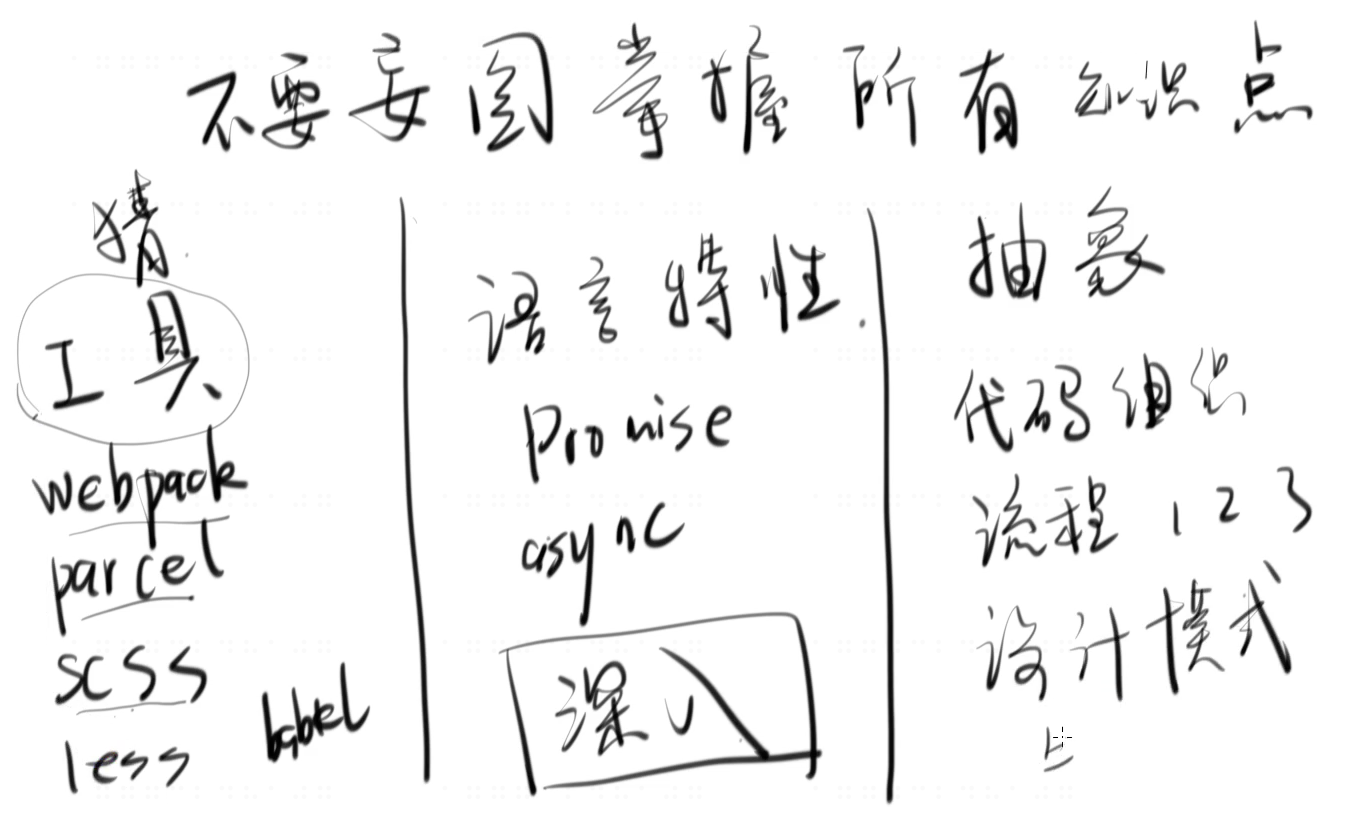 不要妄图掌握所有知识点
猜
工具
webpack
parcel
scss
less
babel
语言特性
promise
async
深入
抽象
代码组织
流程 1 2 3
设计模式